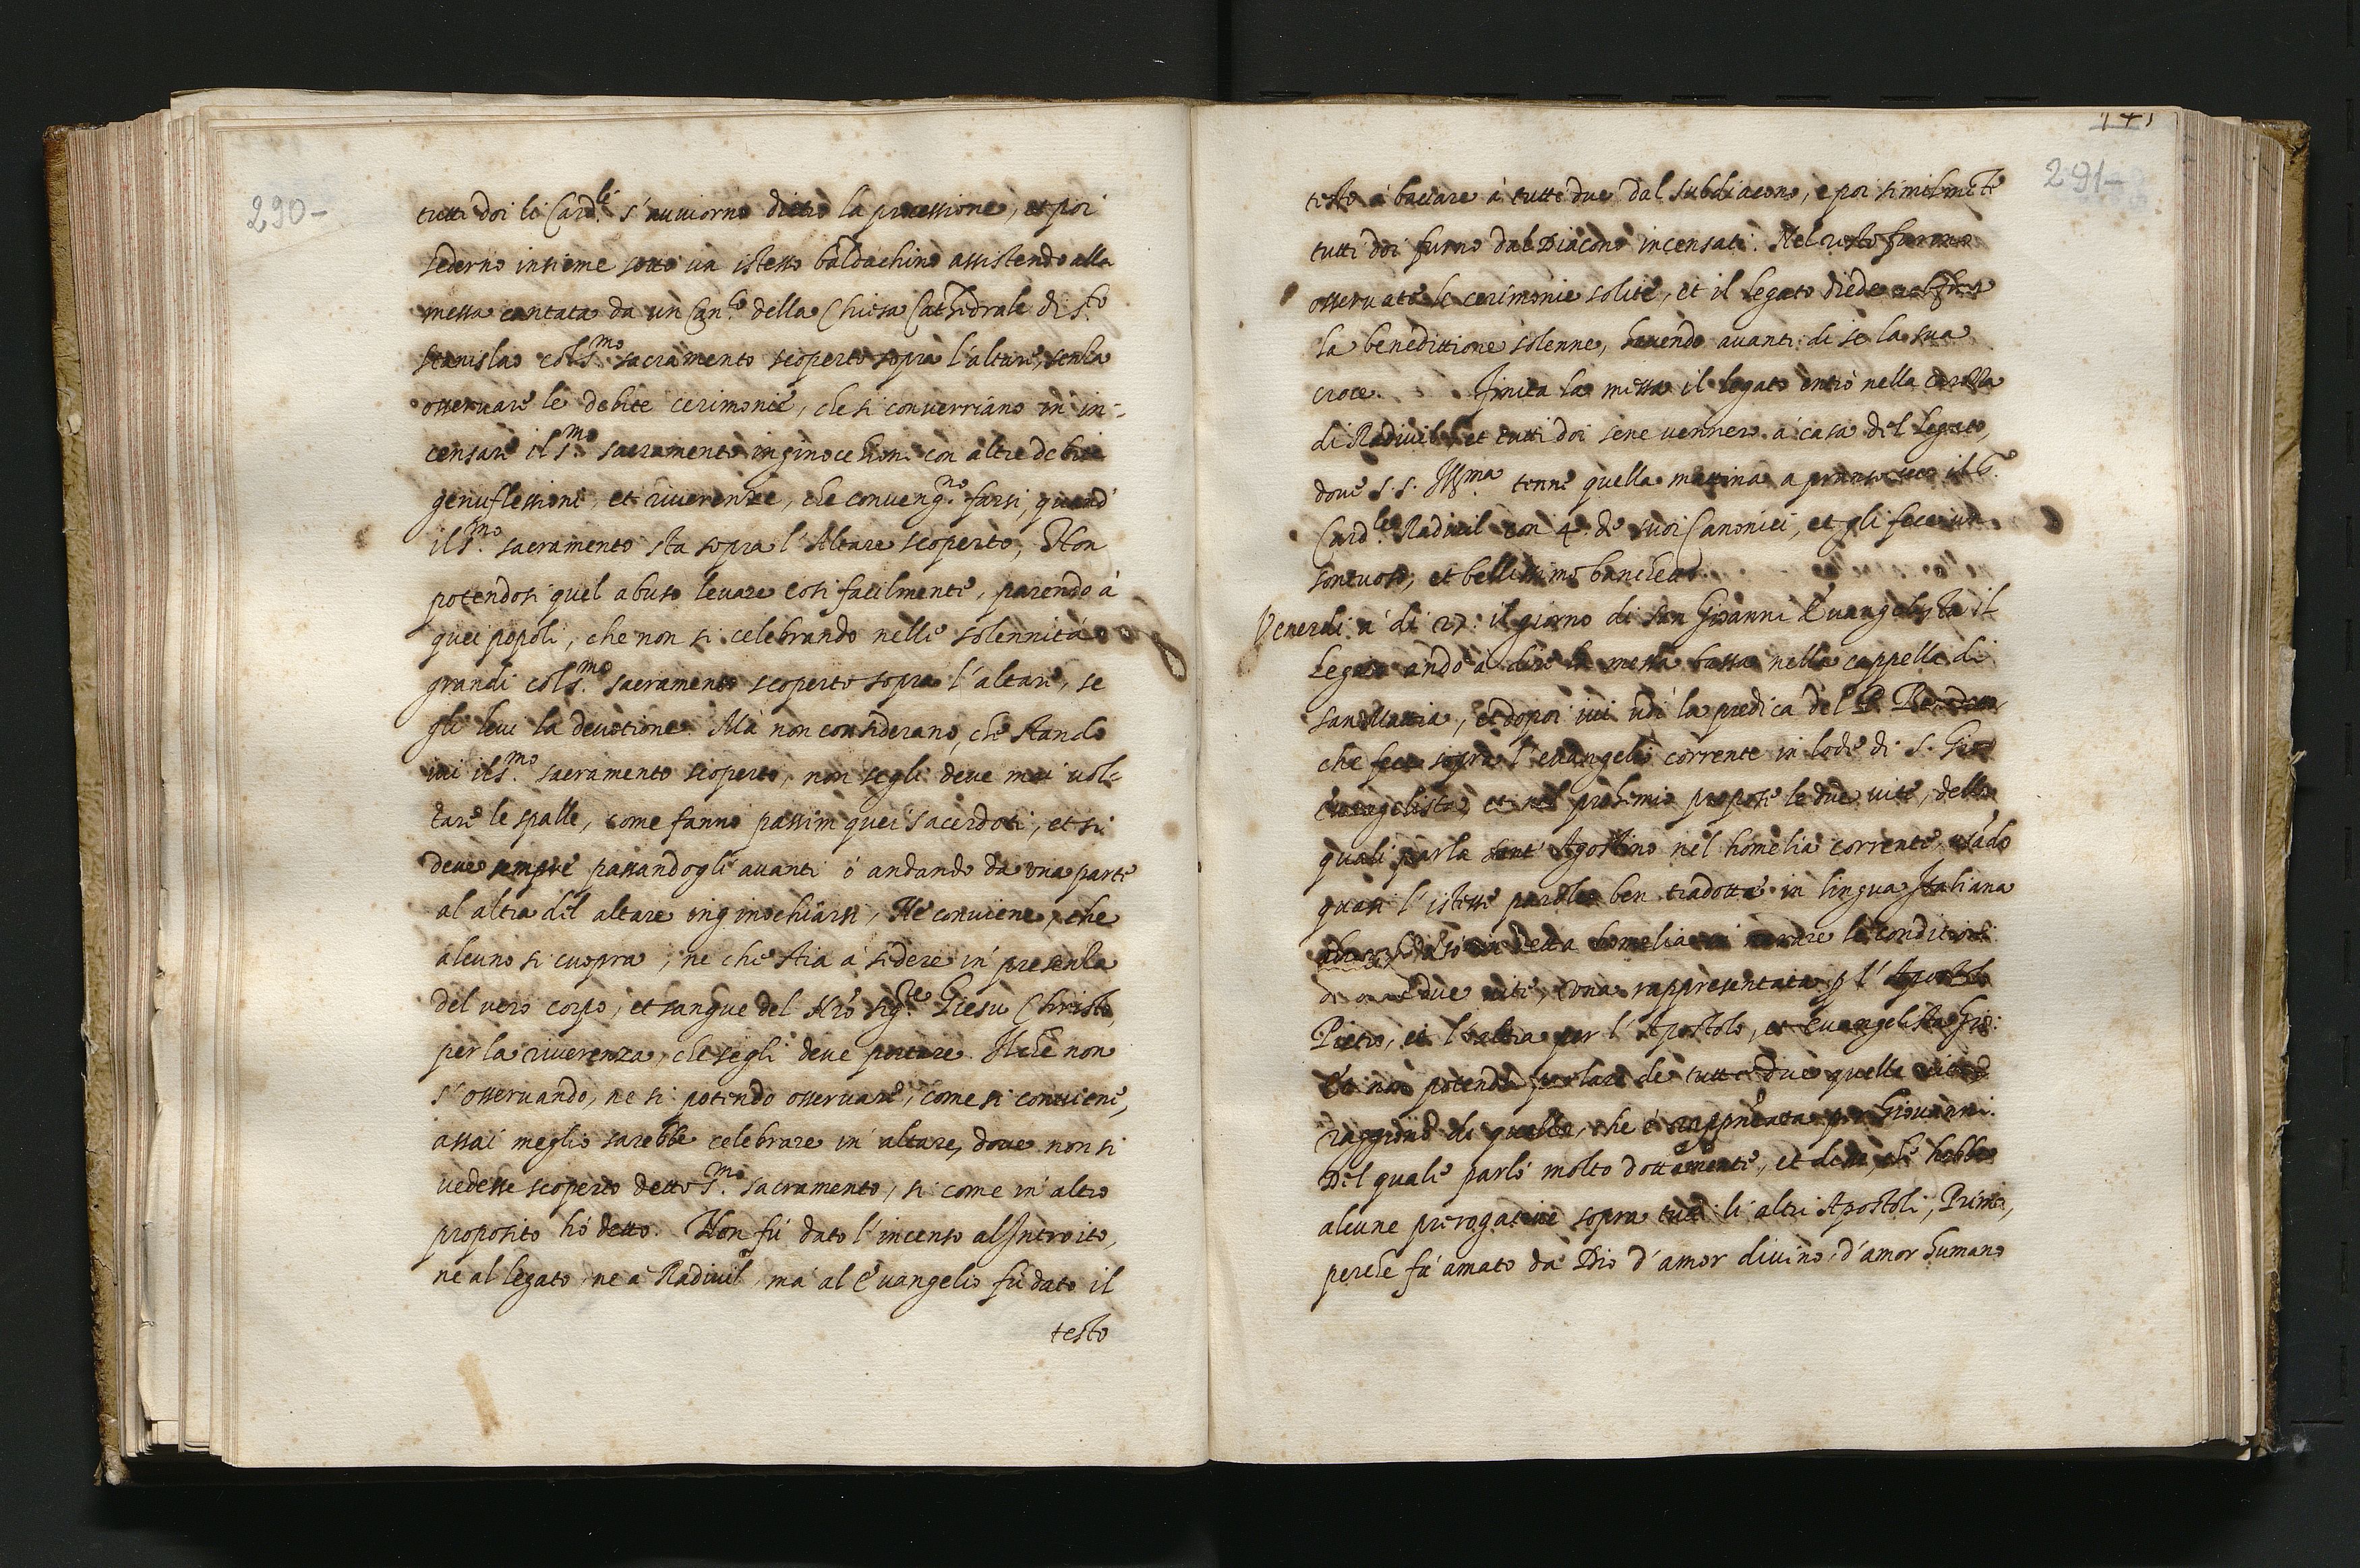 290-
tutti doi li Card.li s'auuiorno dietro la processione, et poi
sederno insieme sotto un istesso baldachino assistendo alla
messa cantata da un Can.co della Chiesa Cathedrale di s.to
stanislao col s.mo sacramento scoperto sopra l'altare, senza
osseruare le debite cerimonie, che si conuerriano in in-
censare il s.mo sacramento inginocchioni con altre debite
genuflessioni, et riuerenze, che conueng.no farsi, quand'
il s.mo sacramento sta sopra l'Altare scoperto, Non
potendosi quel abuso leuare cosi facilmente, parendo à
quei popoli, che non si celebrando nelle solennità
grandi col s.mo sacramento scoperto sopra l'altare, se
gli leui la deuotione. Ma non considerano, che stando
iui il s.mo sacramento scoperto, non segli deue mai uol-
tare le spalle, come fanno passim quei sacerdoti, et si
deue sempre passandogli auanti ò andando da una parte
al altra del altare inginochiarsi, Ne conuiene, che
alcuno si cuopra, ne che stia à sedere in presenza
del vero corpo, et sangue del Nrō sig.re Giesu Christo,
per la riuerenza, che segli deue portare. Il che non
s'osseruando, ne si potendo osseruare, come si conuiene,
assai meglio sarebbe celebrare in altare, doue non si
uedesse scoperto detto S.mo sacramento, si come in altro
proposito hò detto. Non fù dato l'incenso al Introito,
ne al legato, ne a Radiuil, ma al Euangelio fù dato il
testo
141
291-
testo à baciare à tutti due dal subdiacono, e poi similmēte
tutti doi furno dal Diacono incensati. Nel resto furono
osseruate le cerimonie solite, et il legato diede nel fine
la benedittione solenne, hauendo auanti di se la sua
croce. Finita la messa il legato entrò nella carozza
di Radiuil, et tutti doi sene vennero à casa del Legato,
doue S. S. Ill.ma tenne quella mattina a pranso seco il
Card.le Radiuil con 4. de suoi Canonici, et gli fece un
sontuoso, et bellissimo banchetto.
Venerdi à di 27. il giorno di san Giouanni Euangelista il
Legato andò à dire la messa bassa nella cappella di
san Mattia, et dopoi iui udi la predica del P.
che fece sopra l'euangelio corrente in lode di S. Gio:
Euangelista, et nel prohemio propose le due uite, delle
quali parla Sant' Agostino nel homelia corrente, usādo
quasi l'istesse parole ben tradotte in lingua Italiana
in detta homelia nel narrare le conditioni
di due uite, una rappresentata p l'Apostolo
Pietro, et l'altra per l'Apostolo, et Euangelista Gio:
Et non potendo parlare de tutte due quelle uite
raggionò di quella, che è rappresētata per Giouanni.
Del quale parlò molto dottamente, et disse, che hebbe
alcune prerogatiue sopra tutti li altri Apostoli, Prima,
perche fù amato da Dio d'amor diuino, d'amor humano